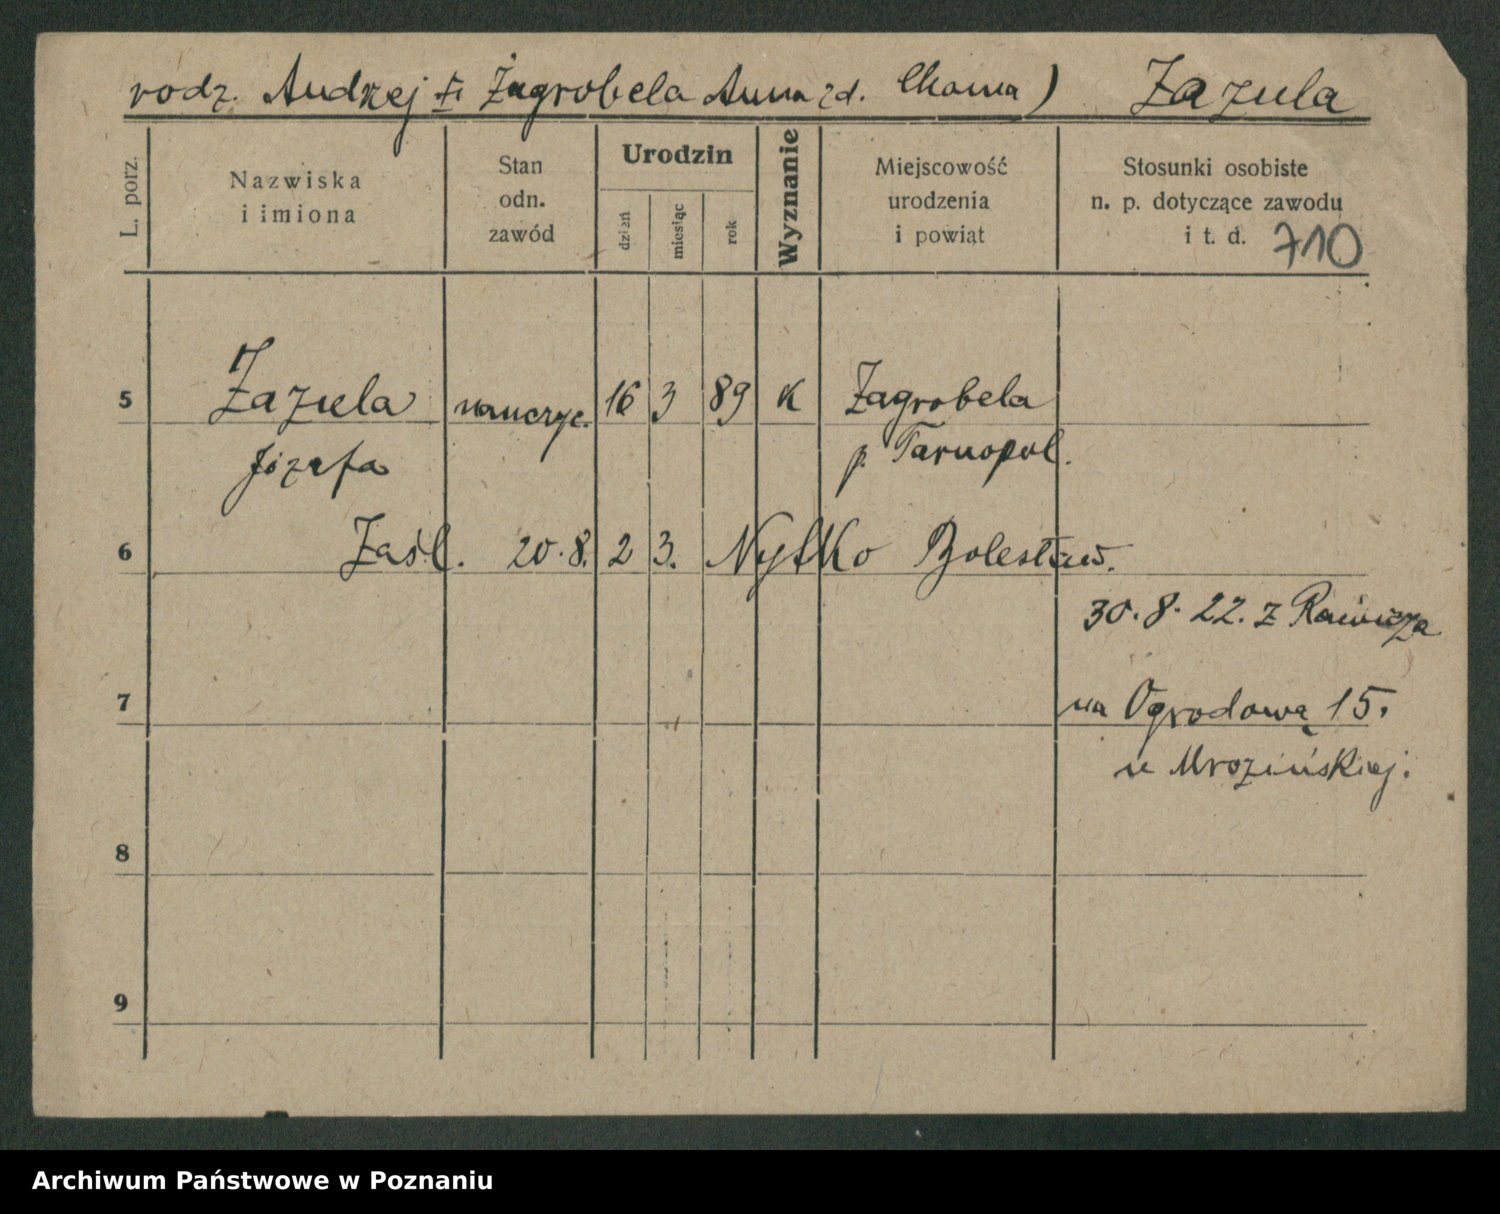 rodz. Andrzej † Zagrobela Anna zd. Choma) Zazula
L. porz.
Nazwiska
i imiona
Stan
odn.
zawód
Urodzin
dzień
miesiąc
rok
Wyznanie
Miejscowość
urodzenia
i powiąt
Stosunki osobiste
n. p. dotyczące zawodu
i t. d. 710
5 Zazula nauczyc. 16 3 89 K Zagrobela
Józefa p. Tarnopol.
6 Zaśl. 20.8. 23. Nytko Bolesław.
30.8.22. z Rawicza
7 na Ogrodową 15.
u Mrozińskiej.
8
9
Archiwum Państwowe w Poznaniu